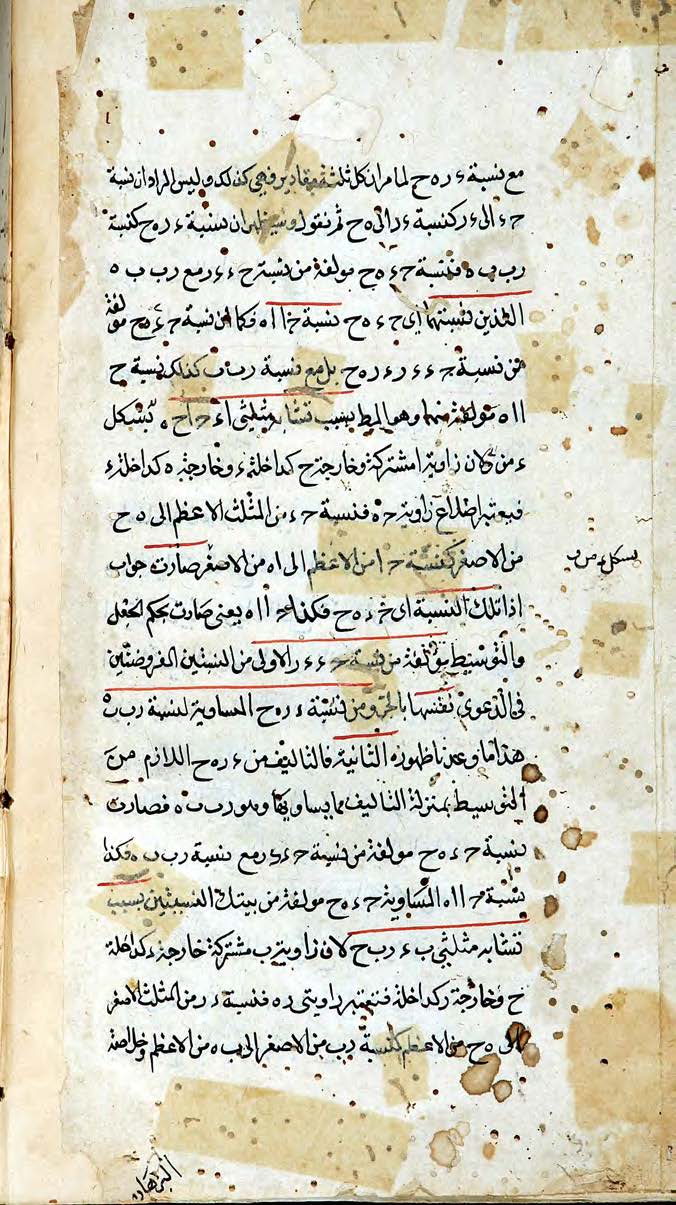 مع نسبة ء ر ه ح لما مر ان كل ثلثة مقادير فهي كذلك و ليس المراد ان نسبة
ح ء الى ء ر كنسبة ء ر الى ه ح ثم نقول و سيظهر ان نسبة ء ر ه ح كنسبة
ر ب ب ه فنسبة ح ء ه ح مولفة من نسبة ح ء ء ر مع ر ب ب ه
اللذين نسبتهما اي ح ء ه ح نسبة ح ا ا ه فكما ان نسبة ح ء ه ح مولفة
من نسبة ح ء ء ر ء ر ه ح بل مع نسبة ر ب ب كذلك نسبة ح
ا ا ه مولفة منهما و هو المط بسبب تشابه مثلثي ا ء ح ا ح ه بشكل
ء من كان زاوية ا مشتركة و خارجة ح كداخلة ء و خارجة ه كداخلة ء
فيعتبر اضلاع زاوية ح ه فنسبة ح ء من المثلث الاعظم الى ه ح
من الاصغر كنسبة ح ا من الاعظم الى ا ه من الاصغر صارت جواب
اذا تلك النسبة اي ح ء ه ح فكذا ح ا ا ه يعني صارت بحكم الجعل
و التوسيط مؤلفة من نسبة ح ء ء ر الاولى من النسبتين المفروضتين
في الدعوى نفسها بالجر و من نسبة ء ر ه ح المساوية لنسبة ر ب ه
هذا ما وعدنا ظهوره الثانية فالتاليف من ء ر ه ح اللازم من
التوسيط بمنزلة التاليف مما يساويها و هو ر ب ب ه فصارت
نسبة ح ء ه ح مولفة من نسبة ح ء ء ر مع نسبة ر ب ب ه فكذا
نسبة ح ا ا ه المساوية ح ء ه ح مولفة من النسبتين بسبب
تشابه مثلثي ب ء ر ب ح لان زاوية ب مشتركة خارجة ء كداخلة
ح و خارجة ر كداخلة فنعتبر زاويتي ر ه فنسبة ء ر من المثلث الاصغر
الى ه ح من الاعظم كنسبة ر ب من الاصغر الى ب ه من الاعظم و
بشكل ء من
البرهان